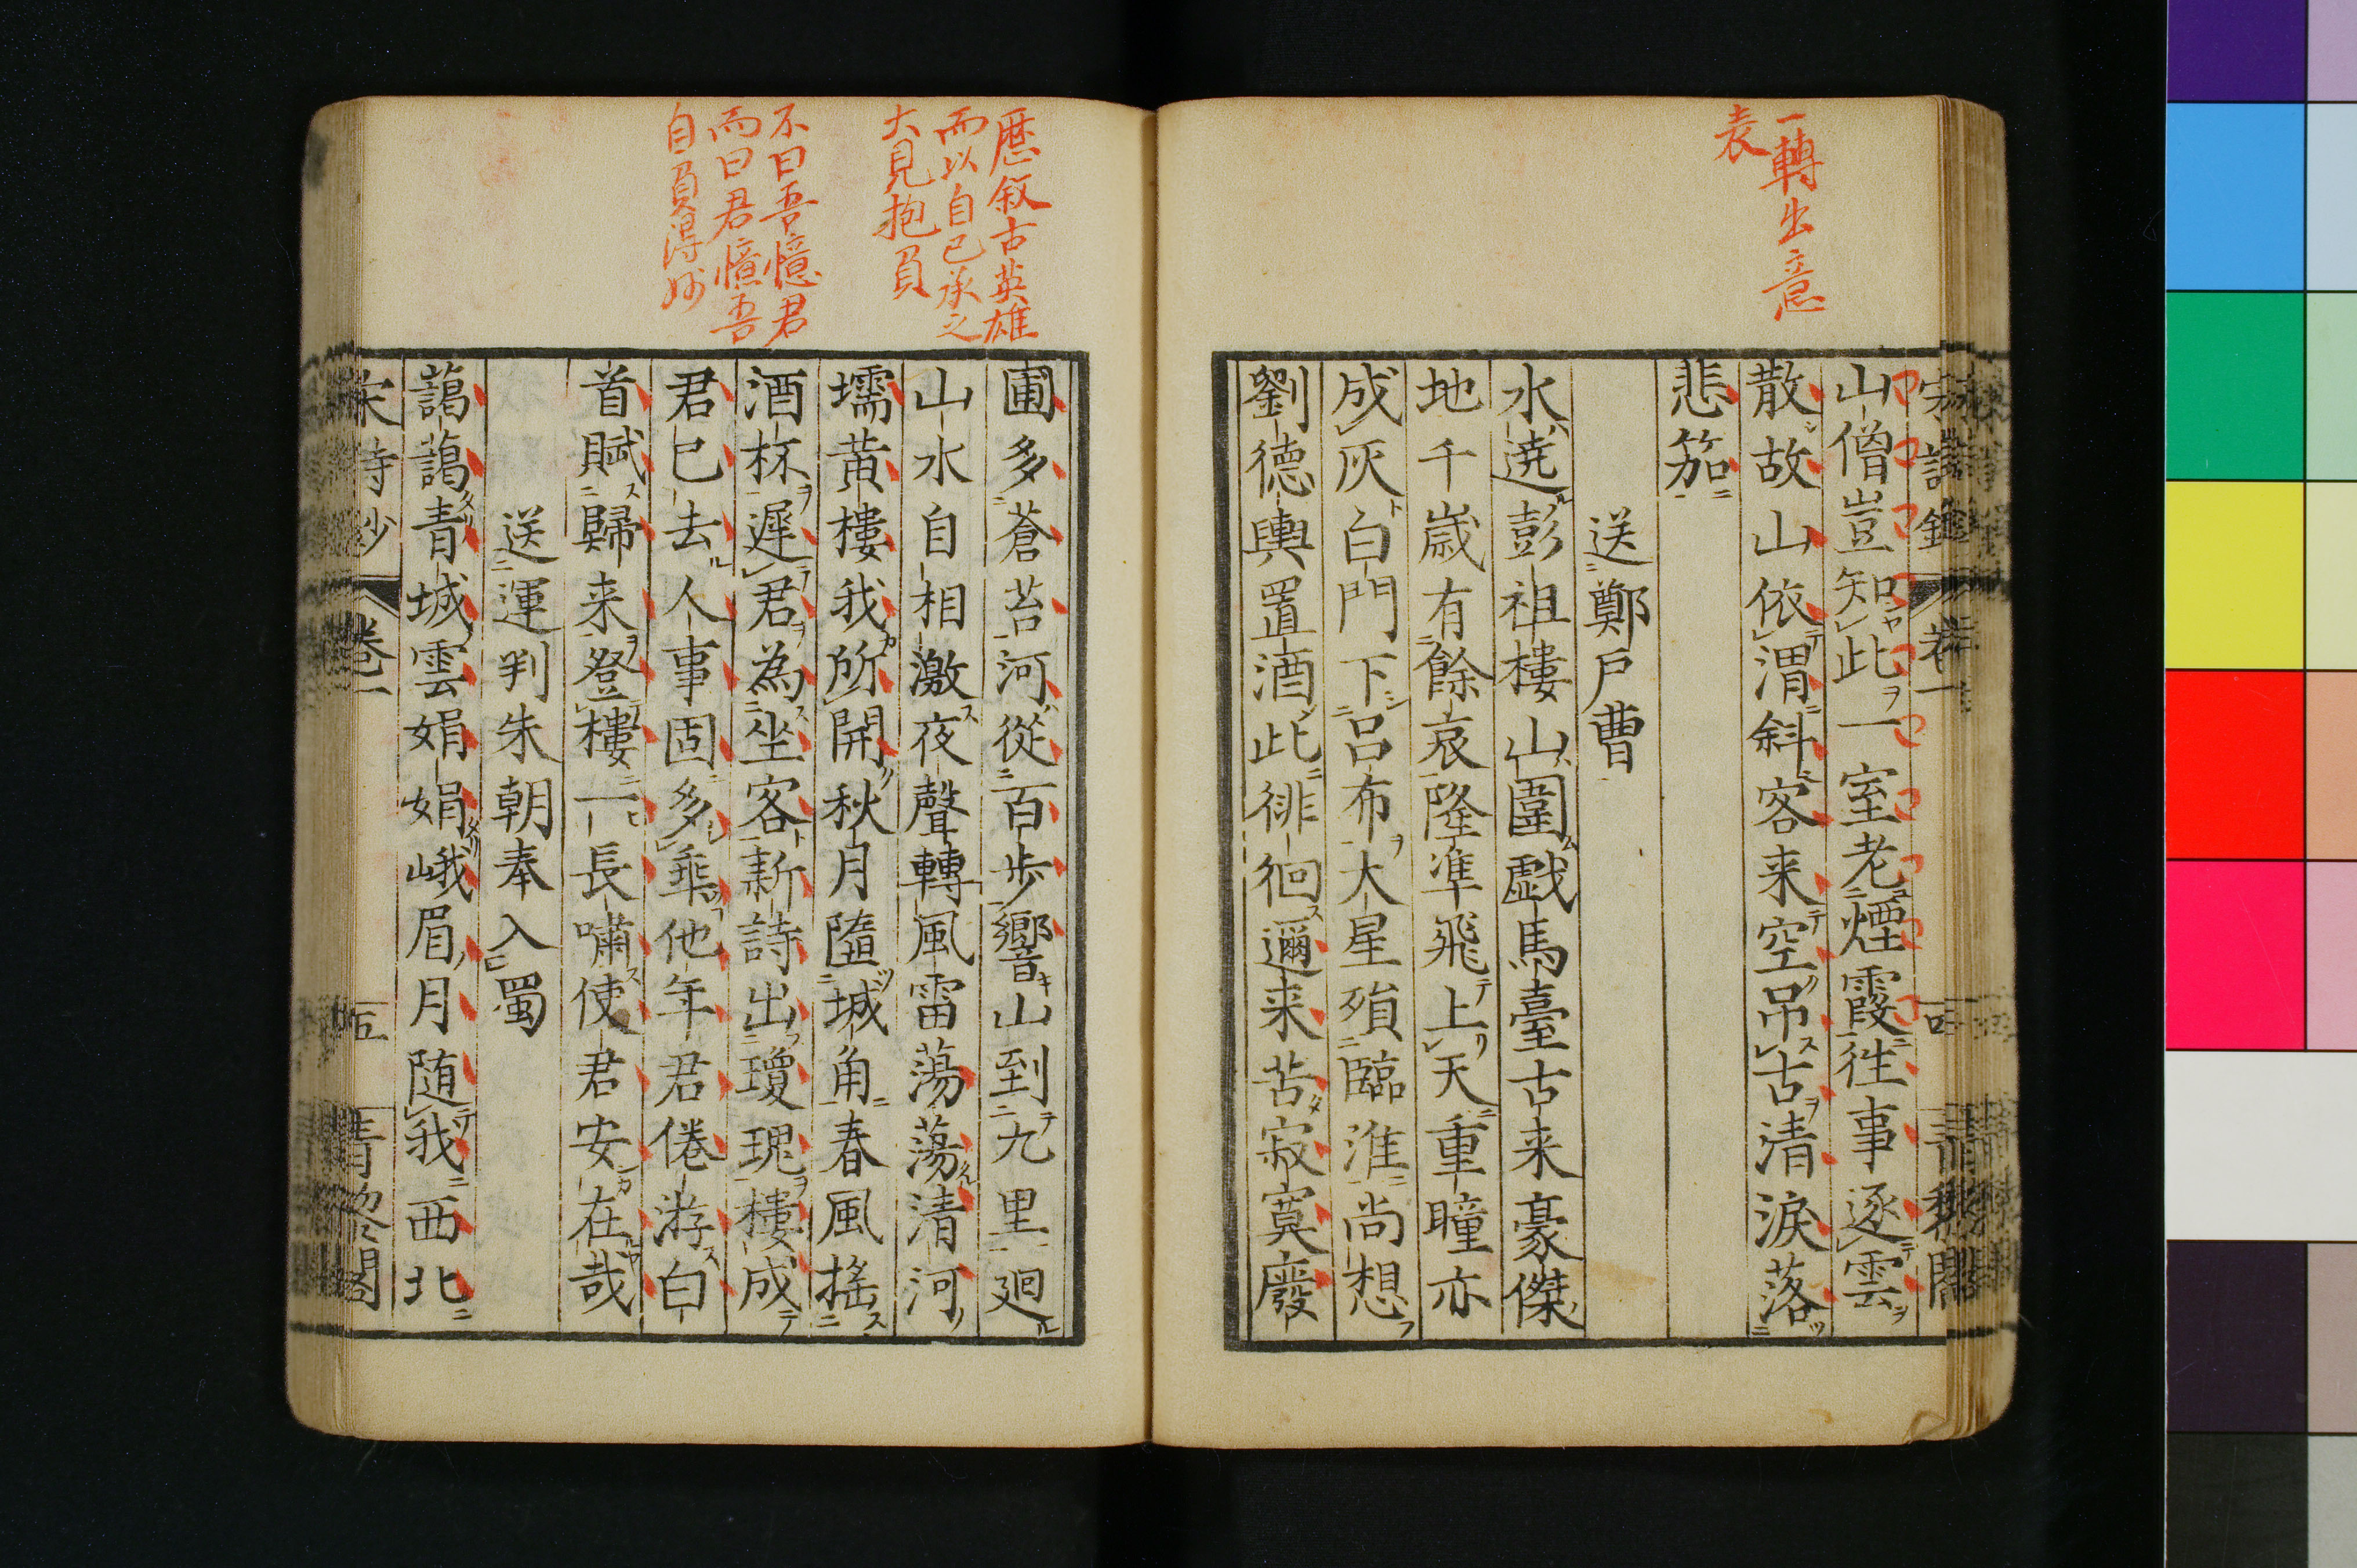 一轉出意
表
山僧豈知此一室老煙霞往事逐雲
散故山依渭斜客来空吊古清淚落
悲笳
送鄭戶曹
水遶彭祖樓山圍戲馬臺古来豪傑
地千歲有餘哀隆準飛上天重瞳亦
成灰白門下呂布大星殞臨淮尚想
劉德輿置酒此徘徊邇来苦寂寞廢
歷叙古英雄
而以自己承之
大見抱負
不曰吾憶君
而曰君憶吾
自負得妙
圃多蒼苔河從百步響山到九里廻
山水自相激夜聲轉風雷蕩蕩清河
壖黃樓我所開秋月隨城角春風搖
酒杯遲君為坐客新詩出瓊瑰樓成
君已去人事固多乖他年君倦游白
首賦歸来登樓一長嘯使君安在哉
送運判朱朝奉入蜀
藹藹青城雲娟娟峨眉月随我西北
宋詩鈔
卷一
五